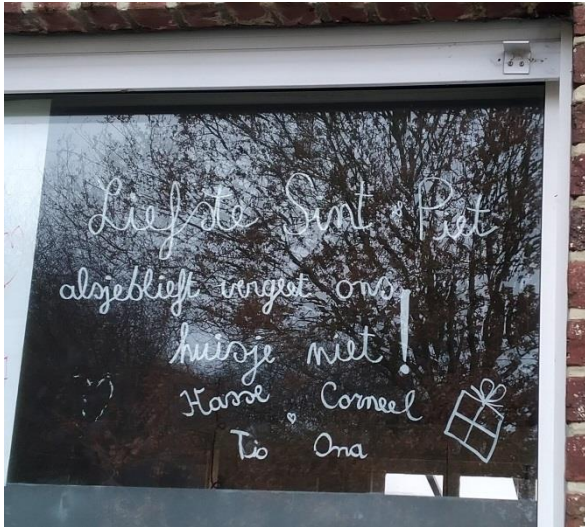 Liefste Sint & Piet
alsjeblieft vergeet ons
huisje niet!
Hasse Corneel
Tio Ona